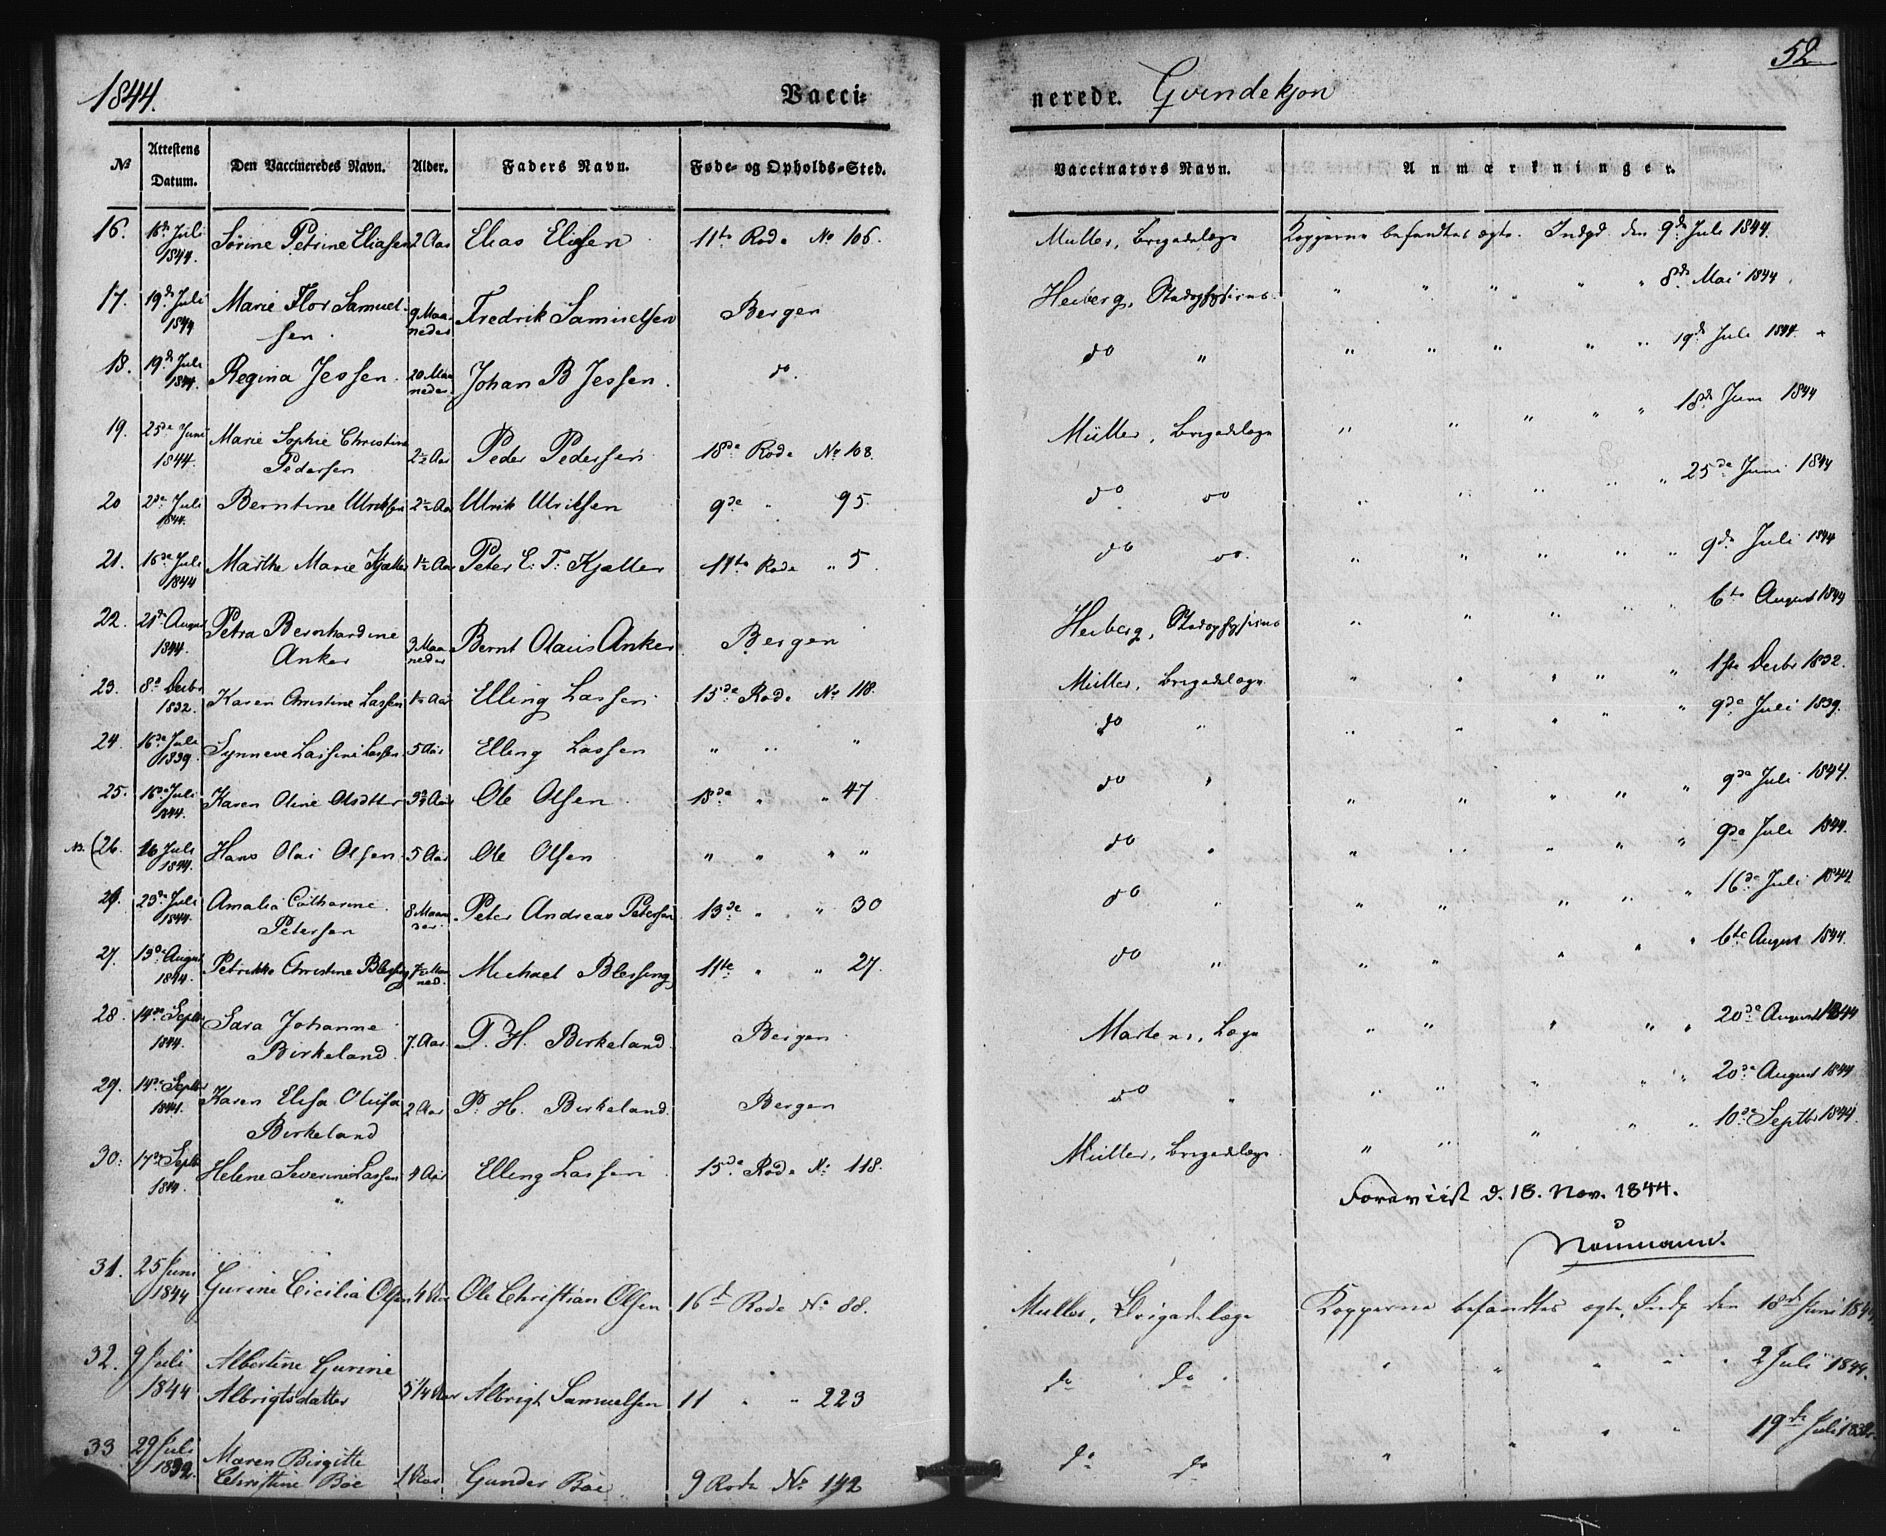 1844.
Vacci-
nerede. Qvindekjøn
52
No
Attestens Datum.
Den Vaccineredes Navn.
Alder.
Faders Navn.
Føde- og Opholds-Sted.
Vaccinators Navn.
Anmærkninger.
16. 16de Juli 1844. Sørine Petrine Eliasen 2 Aar Elias Eliasen 11te Rode No 106. Muller, Brigadelæge Kopperne befandtes ægte. Indgd den 9de Juli 1844.
17. 19de Juli 1844 Marie Flor Samuelsen. 9 Maaneder Fredrik Samuelsen Bergen Heiberg, Stadsphysicus. " " " " " 8de Mai 1844.
18. 19de Juli 1844. Regina Jessen. 20 Maaneder Johan B Jessen. do. do " " " " " " 19de Juli 1844.
19. 25de Juni 1844. Marie Sophie Christine Pedersen 2½ Aar Peder Pedersen 18de Rode No 108. Müller, Brigadelæge " " " " " 18de Juni 1844
20 2de Juli 1844. Berntine Ulriksen 2½ Aar Ulrik Ulriksen 9de " 95 do do " " " " " 25de Juni 1844
21. 16de Juli 1844 Marthe Marie Kjøller 1½ Aar Peter E. T. Kjøller 11te Rode " 5. do do. " " " " " 9de Juli 1844
22. 21de August 1844. Petra Bernhardine Anker 3 Maaneder Bernt Olaus Anker. Bergen Heiberg, Stadsphysicus " " " " " 6te August 1844
23. 8de Decbr 1832. Karen Christine Lassen 1½ Aar Elling Lassen. 15de Rode No 118. Müller, Brigadelæge " " " " " 1ste Decbr 1832.
24. 16de Juli 1839. Synneve Lassine Lassen. 5 Aar Elling Lassen " " " do " " " " " " 9de Juli 1839.
25. 16de Juli 1844. Karen Oline Olsdtter Aar Ole Olsen. 18de " " 47 do " " " " " " 9de Juli 1844.
NB. (26. 16 Juli 1844. Hans Olai Olsen. 5 Aar Ole Olsen " " " " do " " " " " " 9de Juli 1844.
23de Juli 1844. Amalia Catharine Petersen 8 Maaneder. Peter Andreas Petersen 13de " " 30 do " " " " " " 16de Juli 1844
27. 13de August 1844. Petrikke Christine Blessing 7½ Maaned. Michael Blessing 11te " " 27. do " " " " " " 6te August 1844.
28. 14de Septbr 1844. Sara Johanne Birkeland. 7 Aar P. H. Birkeland. Bergen. Martens, Læge " " " " " 20de August 1844
29. 14de Septbr 1844. Karen Elisa Olufa Birkeland 2 Aar P. H. Birkeland. Bergen do " " " " " " 20de August 1844
30. 17de Septbr 1844. Helene Severine Lassen 4 Aar Elling Lassen. 15de Rode No 118. Müller, Brigadelæge. " " " " " 10de Septbr 1844.
Foreviist d. 18. Nov. 1844.
Neumann.
31. 25 Juni 1844 Gurine Cicilia Olsen 4 Aar Ole Christian Olsen 16de Rode No 88. Muller, Brigadelæge Kopperne befandtes ægte, Indg den 18de Juni 1844
32. 9 Juli 1844 Albertine Gurine Albrigtsdatter 5 1/4 Aar Albrigt Samuelsen 11 " " 223 do do " " " " " 2 Juli 1844.
33 29 Juli 1832. Maren Birgitte Christine Bøe 1 Aar Gunder Bøe. 9 Rode No 142 do do " " " " 19de Juli 1832.